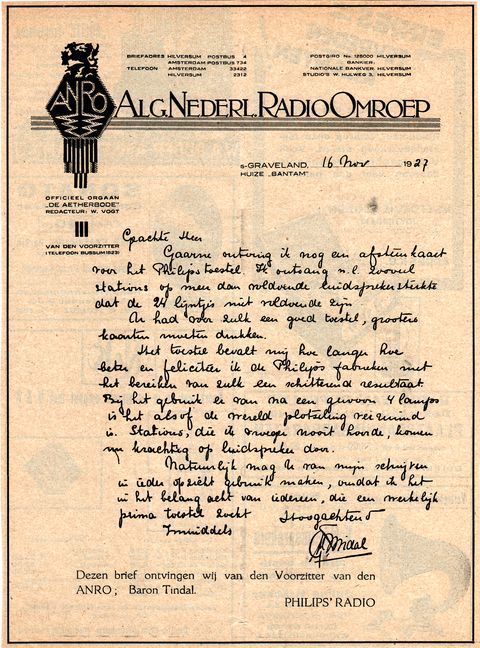 BRIEFADRES HILVERSUM POSTBUS 4
AMSTERDAM POSTBUS 734
TELEFOON AMSTERDAM 33422
HILVERSUM 2312
POSTGIRO No. 128000 HILVERSUM
BANKIER:
NATIONALE BANKVER. HILVERSUM
STUDIO'S W. HULWEG 3, HILVERSUM
ANRO
ALG. NEDERL. RADIO OMROEP
s-GRAVELAND, 16 Nov 1927
HUIZE „BANTAM"
OFFICIEEL ORGAAN
„DE AETHERBODE"
REDACTEUR: W. VOGT
VAN DEN VOORZITTER
(TELEFOON BUSSUM 1523)
Geachte Heer
Gaarne ontving ik nog een afstemkaart
voor het Philipstoestel. Ik ontvang n.l. zooveel
stations op meer dan voldoende luidsprekersterkte
dat de 24 lijntjes niet voldoende zijn.
U had voor zulk een goed toestel, grootere
kaarten moeten drukken.
Het toestel bevalt mij hoe langer hoe
beter en feliciteer ik de Philips fabrieken met
het bereiken van zulk een schitterend resultaat
Bij het gebruik er van na een gewoon 4 lamps
is het alsof de wereld plotseling verruimd
is. Stations, die ik vroeger nooit hoorde, komen
nu krachtig op luidspreker door.
Natuurlijk mag U van mijn schrijven
in ieder opzicht gebruik maken, omdat ik het
in het belang acht van iedereen, die een werkelijk
prima toestel zoekt
Hoogachtend
Inmiddels
Tindal
Dezen brief ontvingen wij van den Voorzitter van den
ANRO; Baron Tindal.
PHILIPS' RADIO